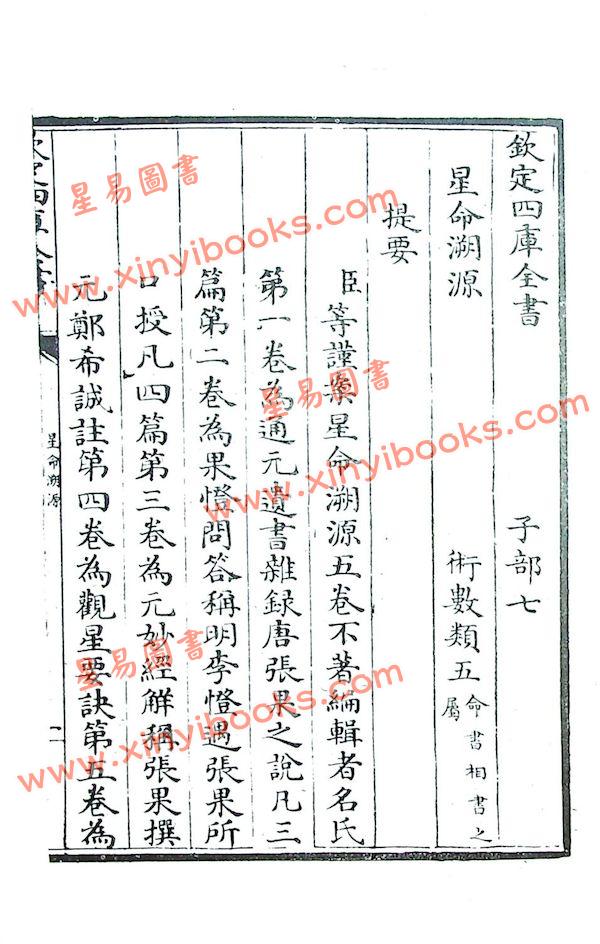 欽定四庫全書　子部七
星命溯源　術數類五命書相書之屬
提要
臣等謹案星命溯源五卷不著編輯者名氏
第一卷為通元遺書雜録唐張果之說凡三
篇第二卷為果憕問答稱明李憕遇張果所
口授凡四篇第三卷為元妙經解稱張果撰
元鄭希誠註第四卷為觀星要訣第五卷為
欽定四庫全書
星命溯源
星易圖書
www.xinyibooks.com
星易圖書
www.xinyibooks.com
星易圖書
www.xinyibooks.com